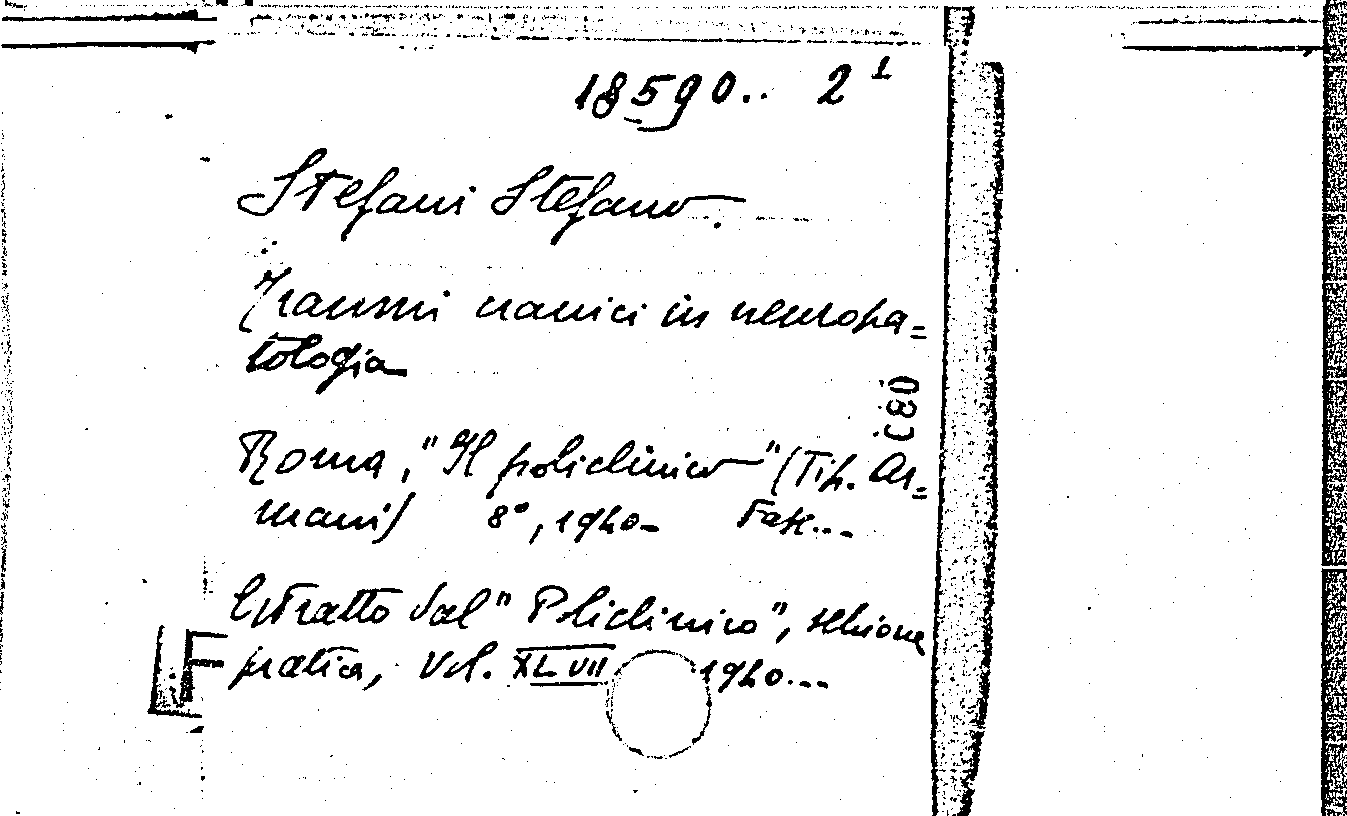 18590.. 2¹
Stefani Stefano.
Traumi cranici in neuropa=
tologia
Roma, "Il policlinico" (Tip. Ar=
mani) 8°, 1940 Fasc...
Estratto dal "Policlinico", sezione
pratica, Vol. XLVII 1940...